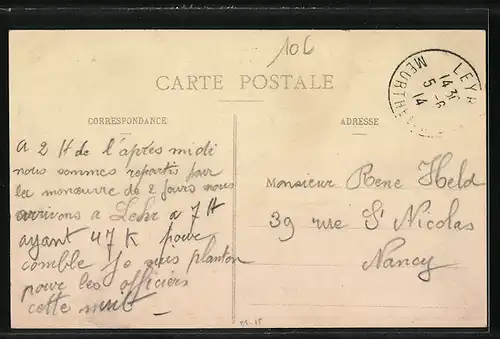 106
CARTE POSTALE
CORRESPONDANCE
ADRESSE
LEYR
MEURTHE
14 31
5 -6
14
a 2 H de l'après midi
nous sommes repartis pour
la manœuvre de 2 jours nous
arrivons a Lehr a 7 H
ayant 47 K pour
comble Je suis planton
pour les officiers
cette nuit
Monsieur Rene Held
39 rue St Nicolas
Nancy